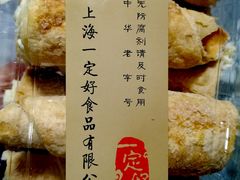 无防腐剂请及时食用
中华老字号
上海一定好食品有限公
一定好